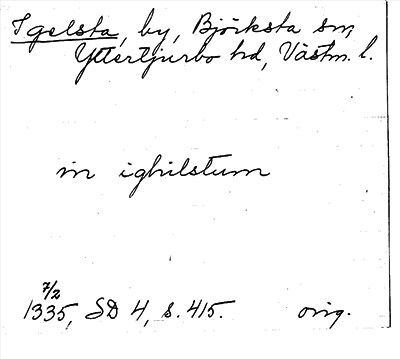 Igelsta, by, Björksta sn,
Yttertjurbo hd, Västm. l.
in ighilstum
7/2
1335, SD 4, s. 415. orig.